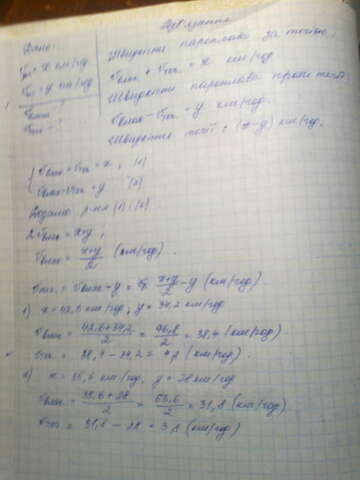 Розв'язання
Дано:
Швидкість пароплава за течією,
vвласн + vтеч = x км/год
Швидкість пароплава проти течії
vвласн - vтеч = y км/год.
Швидкість течії = (x-y) км/год.
vвласн + vтеч = x, (1)
vвласн - vтеч = y (2)
Додамо р-ння (1), (2)
2vвласн = x+y,
vвласн = x+y/2 (км/год).
vтеч = vвласн - y = x+y/2 - y (км/год)
1) x = 42,6 км/год, y = 34,2 км/год
vвласн = 42,6+34,2/2 = 76,8/2 = 38,4 (км/год)
vтеч = 38,4 - 34,2 = 4,2 (км/год).
2) x = 35,6 км/год, y = 28 км/год
vвласн = 35,6+28/2 = 63,6/2 = 31,8 (км/год).
vтеч = 31,8 - 28 = 3,8 (км/год)